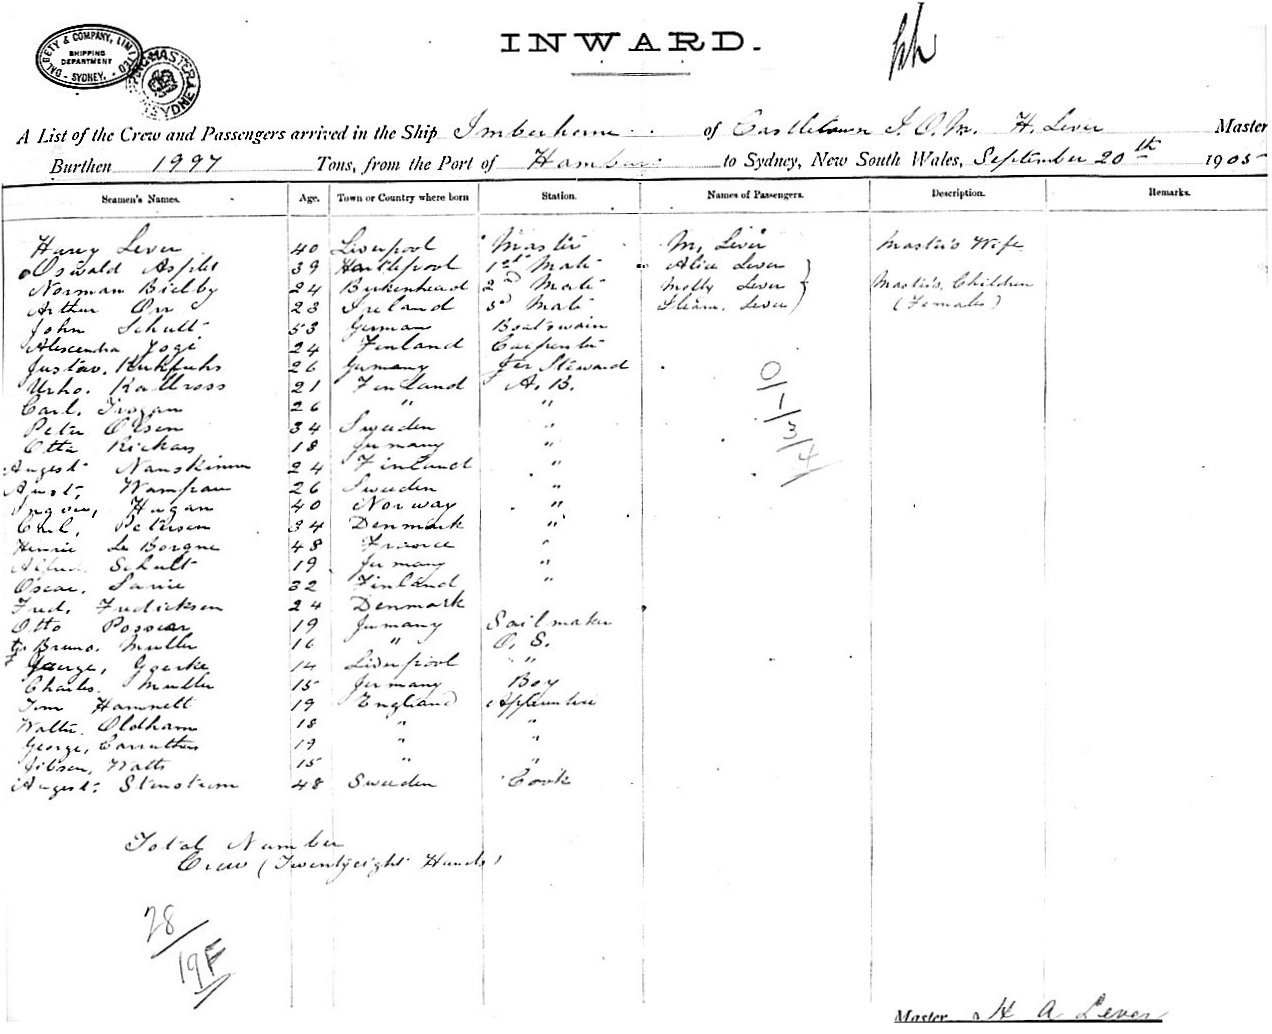 DALGETY & COMPANY, LIMITED
SHIPPING DEPARTMENT
SYDNEY.
SYDNEY
INWARD.
A List of the Crew and Passengers arrived in the Ship Imberhorne of Castletown I.O.M. H. Lever Master
Burthen 1997 Tons, from the Port of Hamburg to Sydney, New South Wales, September 20th 1905
Seamen's Names. Age. Town or Country where born Station. Names of Passengers. Description. Remarks.
Harry Lever 40 Liverpool Master M, Lever Master's Wife
Oswald 39 Hartlepool 1st Mate Alice Lever
Norman Bielby 24 Birkenhead 2nd Mate Molly Lever Master's Children
Arthur Orr 23 Ireland 3d Mate Lever (Females)
John Schult 53 German Boatswain
24 Finland Carpenter
Gustav. 26 Germany Steward
Urho. Kallross 21 Finland A.B.
Carl. 26 " "
Peter Olsen 34 Sweden "
Otto 18 Germany "
August 24 Finland "
26 Sweden "
Hagan 40 Norway "
Carl, Petersen 34 Denmark "
Henrie Le Borgne 48 France "
Alfred Schult 19 Germany "
Oscar. 32 Finland "
Fred. Fredicksen 24 Denmark
Otto 19 Germany Sailmaker
Bruno. Muller 16 " O.S.
George, Goerke 14 Liverpool "
Charles. Muller 15 Germany Boy
Tom Hammett 19 England Apprentice
Walter. Oldham 18 " "
George, Carruthers 19 " "
Gibson, Watts 15 " "
August. Stenstrom 48 Sweden Cook
0/1/3/4/
Total Number
Crew (Twentyeight Hands)
28/
19F
Master H A Lever